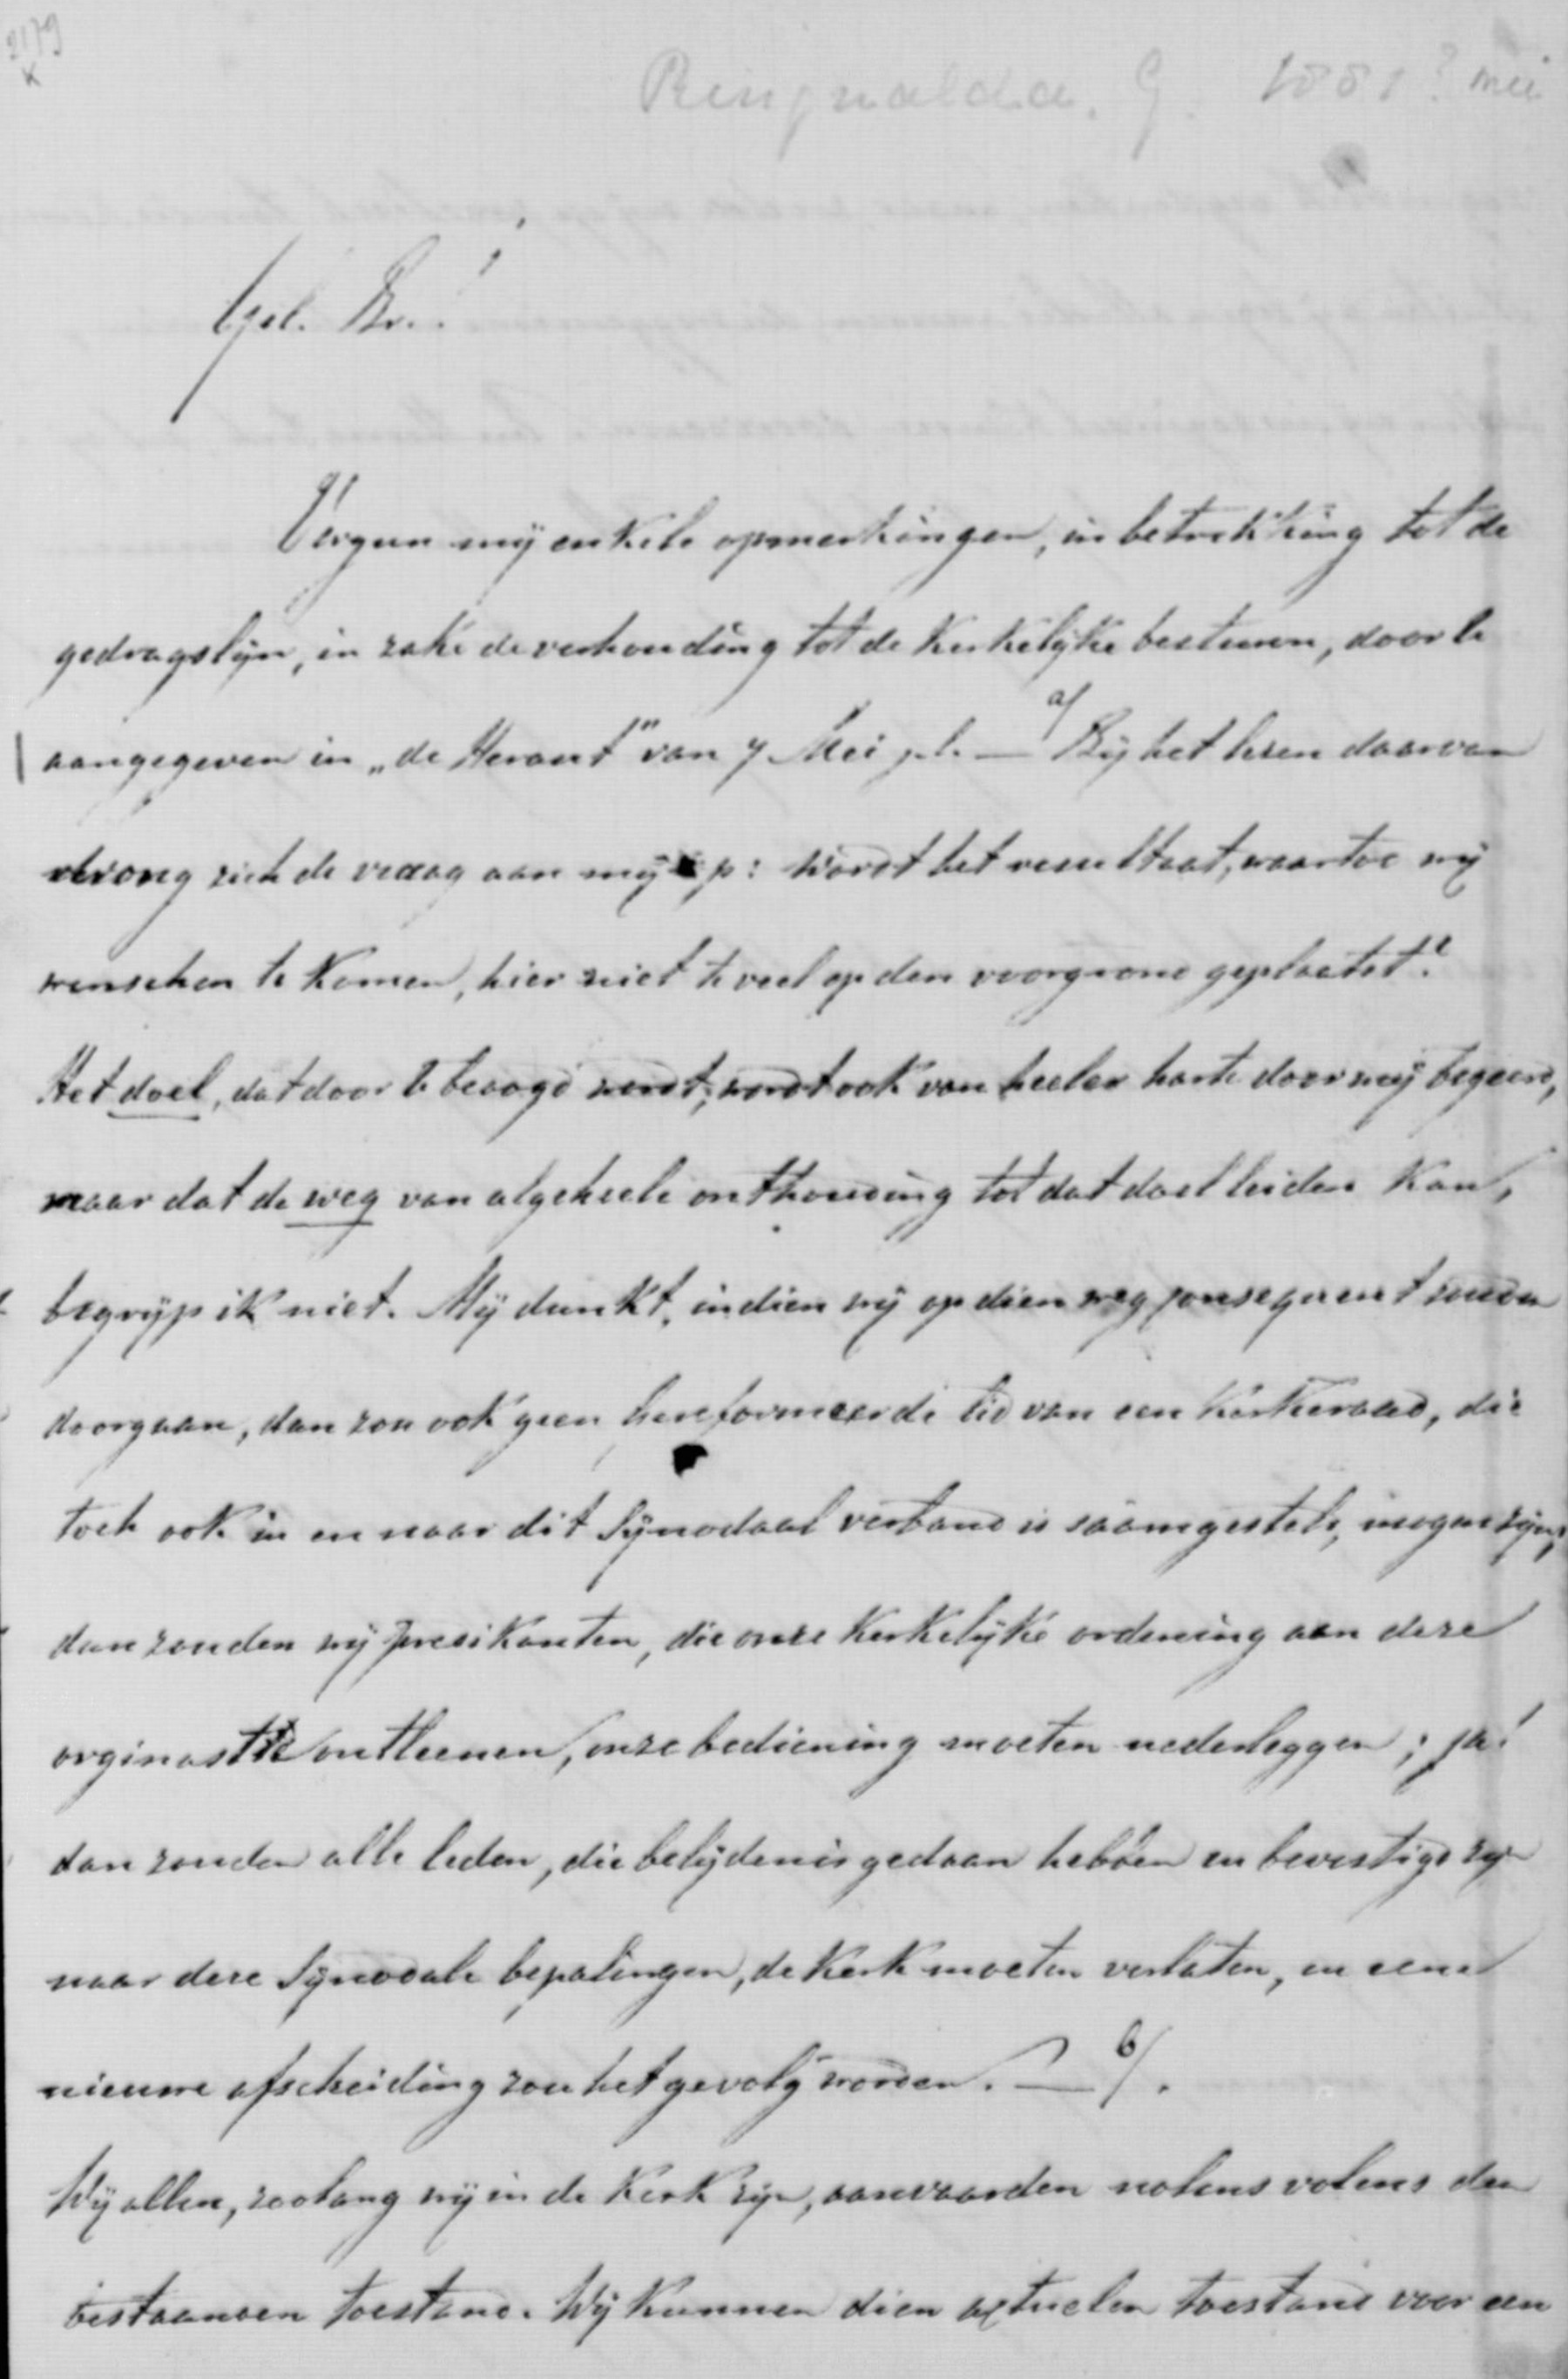 2179
K
Ringnalda. G. 1881? mei
Gel. Br.!
Vergun mij enkele opmerkingen, in betrekking tot de
gedragslijn, in zake de verhouding tot de Kerkelijke besturen, door U
aangegeven in „de Heraut" van 7 Mei j.l. — a/ Bij het lezen daarvan
drong zich de vraag aan mij op: wordt het resultaat, waartoe wij
wenschen te komen, hier niet te veel op den voorgrond geplaatst?
Het doel, dat door U beoogd wordt, wordt ook van heeler harte door mij begeerd,
maar dat de weg van algeheele onthouding tot dat doel leiden kan,
begrijp ik niet. Mij dunkt, indien wij op dien weg consequent zouden
doorgaan, dan zou ook geen Gereformeerde lid van een Kerkeraad, die
toch ook in en naar dit Synodaal verband is saamgesteld, mogen zijn,
dan zouden wij Predikanten, die onze Kerkelijke ordening aan deze
orginastie ontleenen, onze bediening moeten nederleggen; ja!
dan zouden alle leden, die belijdenis gedaan hebben en bevestigd zijn
naar deze Synodale bepalingen, de Kerk moeten verlaten, en eene
nieuwe afscheiding zou het gevolg worden. — b/.
Wij allen, zoolang wij in de Kerk zijn, aanvaarden nolens volens den
bestaanden toestand. Wij kunnen dien actuelen toestand voor een